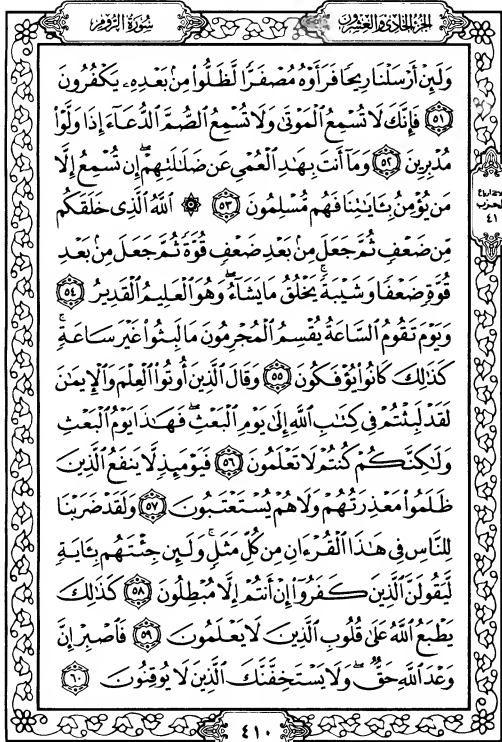 سُورَةُ الرُّومِ
الجُزْءُ الحَادِي وَالعِشْرُونَ
وَلَئِنْ أَرْسَلْنَا رِيحًا فَرَأَوْهُ مُصْفَرًّا لَّظَلُّوا۟ مِنۢ بَعْدِهِۦ يَكْفُرُونَ
﴿٥١﴾ فَإِنَّكَ لَا تُسْمِعُ ٱلْمَوْتَىٰ وَلَا تُسْمِعُ ٱلصُّمَّ ٱلدُّعَآءَ إِذَا وَلَّوْا۟
مُدْبِرِينَ ﴿٥٢﴾ وَمَآ أَنتَ بِهَٰدِ ٱلْعُمْىِ عَن ضَلَٰلَتِهِمْ ۖ إِن تُسْمِعُ إِلَّا
مَن يُؤْمِنُ بِـَٔايَٰتِنَا فَهُم مُّسْلِمُونَ ﴿٥٣﴾ ۞ ٱللَّهُ ٱلَّذِى خَلَقَكُم
مِّن ضَعْفٍ ثُمَّ جَعَلَ مِنۢ بَعْدِ ضَعْفٍ قُوَّةً ثُمَّ جَعَلَ مِنۢ بَعْدِ
قُوَّةٍ ضَعْفًا وَشَيْبَةً ۚ يَخْلُقُ مَا يَشَآءُ ۖ وَهُوَ ٱلْعَلِيمُ ٱلْقَدِيرُ ﴿٥٤﴾
وَيَوْمَ تَقُومُ ٱلسَّاعَةُ يُقْسِمُ ٱلْمُجْرِمُونَ مَا لَبِثُوا۟ غَيْرَ سَاعَةٍ ۚ
كَذَٰلِكَ كَانُوا۟ يُؤْفَكُونَ ﴿٥٥﴾ وَقَالَ ٱلَّذِينَ أُوتُوا۟ ٱلْعِلْمَ وَٱلْإِيمَٰنَ
لَقَدْ لَبِثْتُمْ فِى كِتَٰبِ ٱللَّهِ إِلَىٰ يَوْمِ ٱلْبَعْثِ ۖ فَهَٰذَا يَوْمُ ٱلْبَعْثِ
وَلَٰكِنَّكُمْ كُنتُمْ لَا تَعْلَمُونَ ﴿٥٦﴾ فَيَوْمَئِذٍ لَّا يَنفَعُ ٱلَّذِينَ
ظَلَمُوا۟ مَعْذِرَتُهُمْ وَلَا هُمْ يُسْتَعْتَبُونَ ﴿٥٧﴾ وَلَقَدْ ضَرَبْنَا
لِلنَّاسِ فِى هَٰذَا ٱلْقُرْءَانِ مِن كُلِّ مَثَلٍ ۚ وَلَئِن جِئْتَهُم بِـَٔايَةٍ
لَّيَقُولَنَّ ٱلَّذِينَ كَفَرُوٓا۟ إِنْ أَنتُمْ إِلَّا مُبْطِلُونَ ﴿٥٨﴾ كَذَٰلِكَ
يَطْبَعُ ٱللَّهُ عَلَىٰ قُلُوبِ ٱلَّذِينَ لَا يَعْلَمُونَ ﴿٥٩﴾ فَٱصْبِرْ إِنَّ
وَعْدَ ٱللَّهِ حَقٌّ ۖ وَلَا يَسْتَخِفَّنَّكَ ٱلَّذِينَ لَا يُوقِنُونَ ﴿٦٠﴾
الحزب
٤١
٤١٠